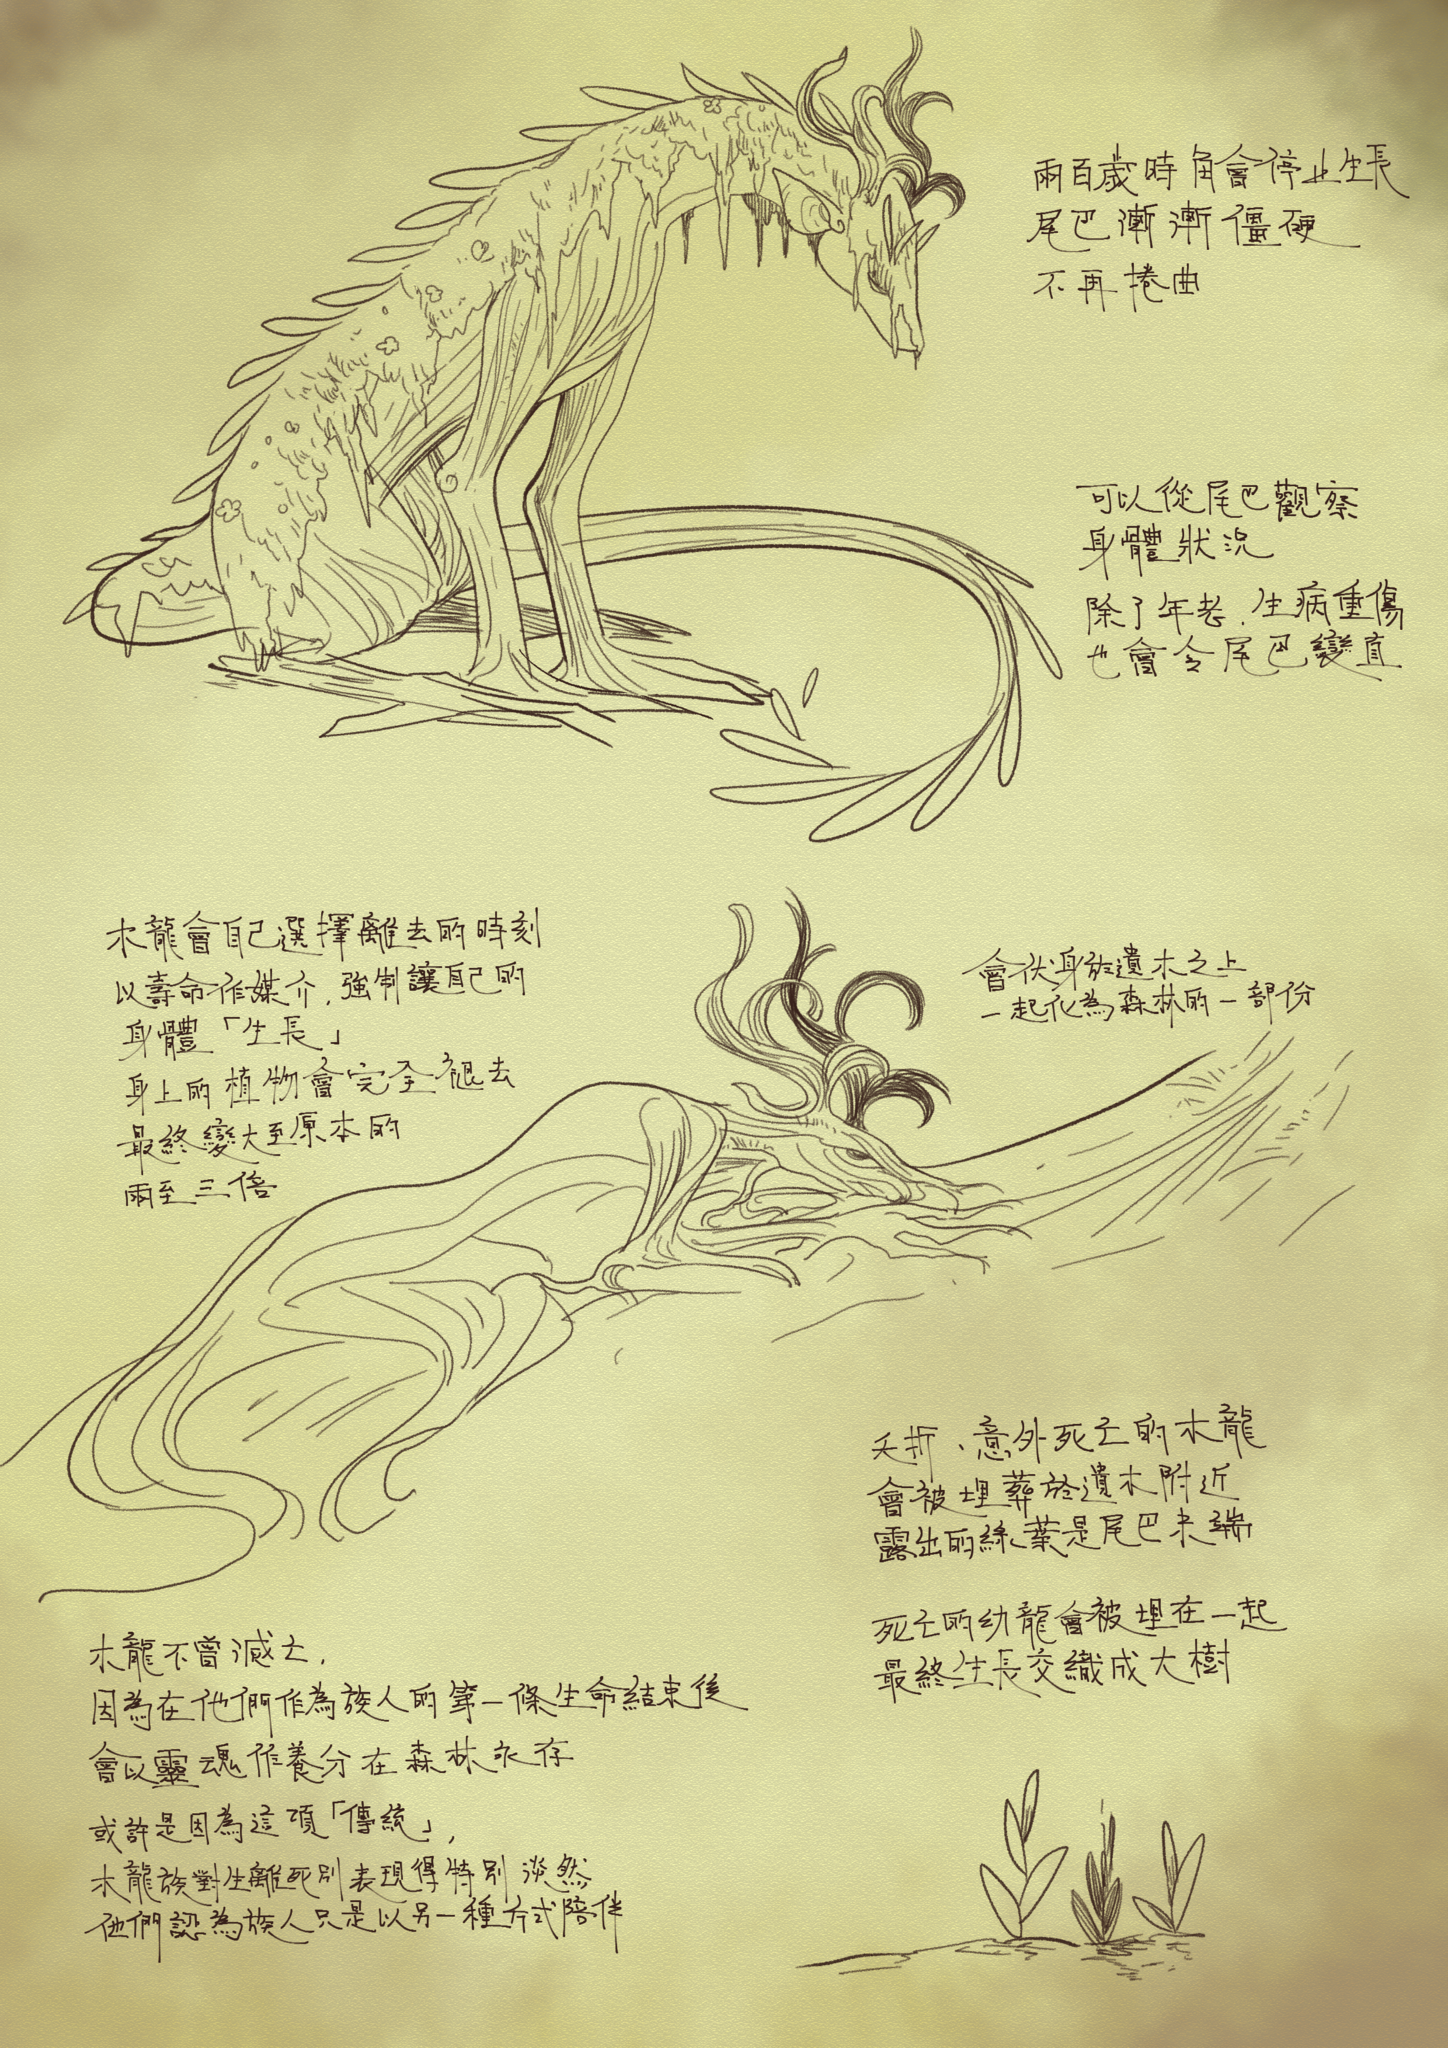 兩百歲時角會停止生長
尾巴漸漸僵硬
不再捲曲
可以從尾巴觀察
身體狀況
除了年老、生病重傷
也會令尾巴變直
木龍會自己選擇離去的時刻
以壽命作媒介，強制讓自己的
身體「生長」
身上的植物會完全褪去
最終變大至原本的
兩至三倍
會伏身於遺木之上
一起化為森林的一部份
夭折、意外死亡的木龍
會被埋葬於遺木附近
露出的絲葉是尾巴末端
死亡的幼龍會被埋在一起
最終生長交織成大樹
木龍不曾滅亡，
因為在他們作為族人的第一條生命結束後
會以靈魂作養分在森林永存
或許是因為這項「傳統」，
木龍族對生離死別表現得特別淡然
他們認為族人只是以另一種方式陪伴